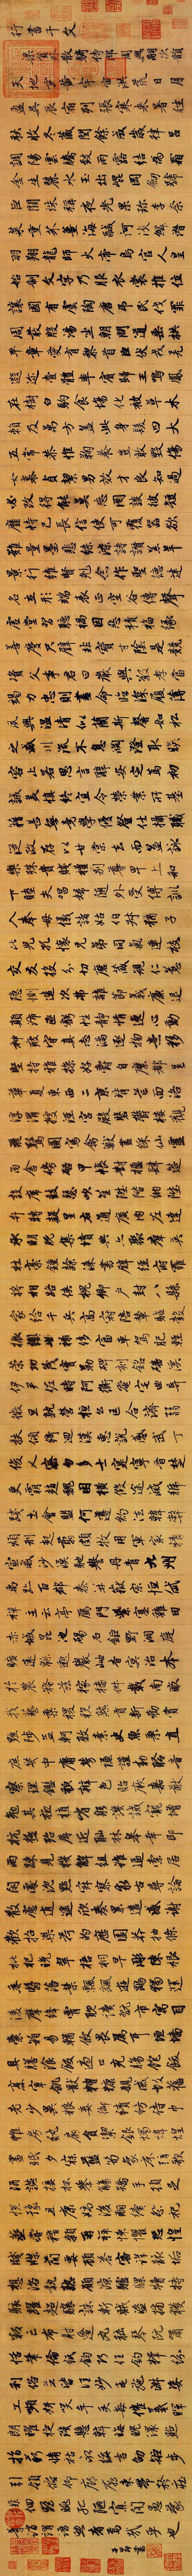 行書千文
梁員外散騎侍郎周興嗣次韻
天地玄黃宇宙洪荒日月
盈昃辰宿列張寒來暑往
秋收冬藏閏餘成歲律呂
調陽雲騰致雨露結為霜
金生麗水玉出崑岡劍號
巨闕珠稱夜光果珍李柰
菜重芥薑海鹹河淡鱗潛
羽翔龍師火帝鳥官人皇
始制文字乃服衣裳推位
讓國有虞陶唐弔民伐罪
周發殷湯坐朝問道垂拱
平章愛育黎首臣伏戎羌
遐邇壹體率賓歸王鳴鳳
在樹白駒食場化被草木
賴及萬方蓋此身髮四大
五常恭惟鞠養豈敢毀傷
女慕貞潔男效才良知過
必改得能莫忘罔談彼短
靡恃己長信使可覆器欲
難量墨悲絲染詩讚羔羊
景行維賢克念作聖德建
名立形端表正空谷傳聲
虛堂習聽禍因惡積福緣
善慶尺璧非寶寸陰是競
資父事君曰嚴與敬孝當
竭力忠則盡命臨深履薄
夙興溫凊似蘭斯馨如松
之盛川流不息淵澄取映
容止若思言辭安定篤初
誠美慎終宜令榮業所基
籍甚無竟學優登仕攝職
從政存以甘棠去而益詠
樂殊貴賤禮別尊卑上和
下睦夫唱婦隨外受傅訓
入奉母儀諸姑伯叔猶子
比兒孔懷兄弟同氣連枝
交友投分切磨箴規仁慈
隱惻造次弗離節義廉退
顛沛匪虧性靜情逸心動
神疲守真志滿逐物意移
堅持雅操好爵自縻都邑
華夏東西二京背邙面洛
浮渭據涇宮殿盤鬱樓觀
飛驚圖寫禽獸畫彩仙靈
丙舍傍啟甲帳對楹肆筵
設席鼓瑟吹笙陞階納陛
弁轉疑星右通廣內左達
承明既集墳典亦聚群英
杜稿鍾隸漆書壁經府羅
將相路俠槐卿戶封八縣
家給千兵高冠陪輦驅轂
振纓世祿侈富車駕肥輕
策功茂實勒碑刻銘磻溪
伊尹佐時阿衡奄宅曲阜
微旦孰營桓公匡合濟弱
扶傾綺迴漢惠說感武丁
俊乂密勿多士寔寧晉楚
更霸趙魏困橫假途滅虢
踐土會盟何遵約法韓弊
煩刑起翦頗牧用軍最精
宣威沙漠馳譽丹青九州
禹跡百郡秦并嶽宗恒岱
禪主云亭雁門紫塞雞田
赤城昆池碣石鉅野洞庭
曠遠綿邈巖岫杳冥治本
於農務茲稼穡俶載南畝
我藝黍稷稅熟貢新勸賞
黜陟孟軻敦素史魚秉直
庶幾中庸勞謙謹敕聆音
察理鑒貌辨色貽厥嘉猷
勉其祗植省躬譏誡寵增
抗極殆辱近恥林皋幸即
兩疏見機解組誰逼索居
閑處沉默寂寥求古尋論
散慮逍遙欣奏累遣慼謝
歡招渠荷的歷園莽抽條
枇杷晚翠梧桐早凋陳根
委翳落葉飄颻遊鵾獨運
凌摩絳霄耽讀翫市寓目
囊箱易輶攸畏屬耳垣牆
具膳餐飯適口充腸飽飫
烹宰飢厭糟糠親戚故舊
老少異糧妾御績紡侍巾
帷房紈扇圓潔銀燭煒煌
晝眠夕寐藍筍象床絃歌
酒讌接杯舉觴矯手頓足
悅豫且康嫡後嗣續祭祀
烝嘗稽顙再拜悚懼恐惶
牋牒簡要顧答審詳骸垢
想浴執熱願涼驢騾犢特
駭躍超驤誅斬賊盜捕獲
叛亡布射遼丸嵇琴阮嘯
恬筆倫紙鈞巧任釣釋紛
利俗並皆佳妙毛施淑姿
工顰妍笑年矢每催羲暉
朗曜璇璣懸斡晦魄環照
指薪修祜永綏吉劭矩步
引領俯仰廊廟束帶矜莊
徘徊瞻眺孤陋寡聞愚蒙
等誚謂語助者焉哉乎也
子昂書